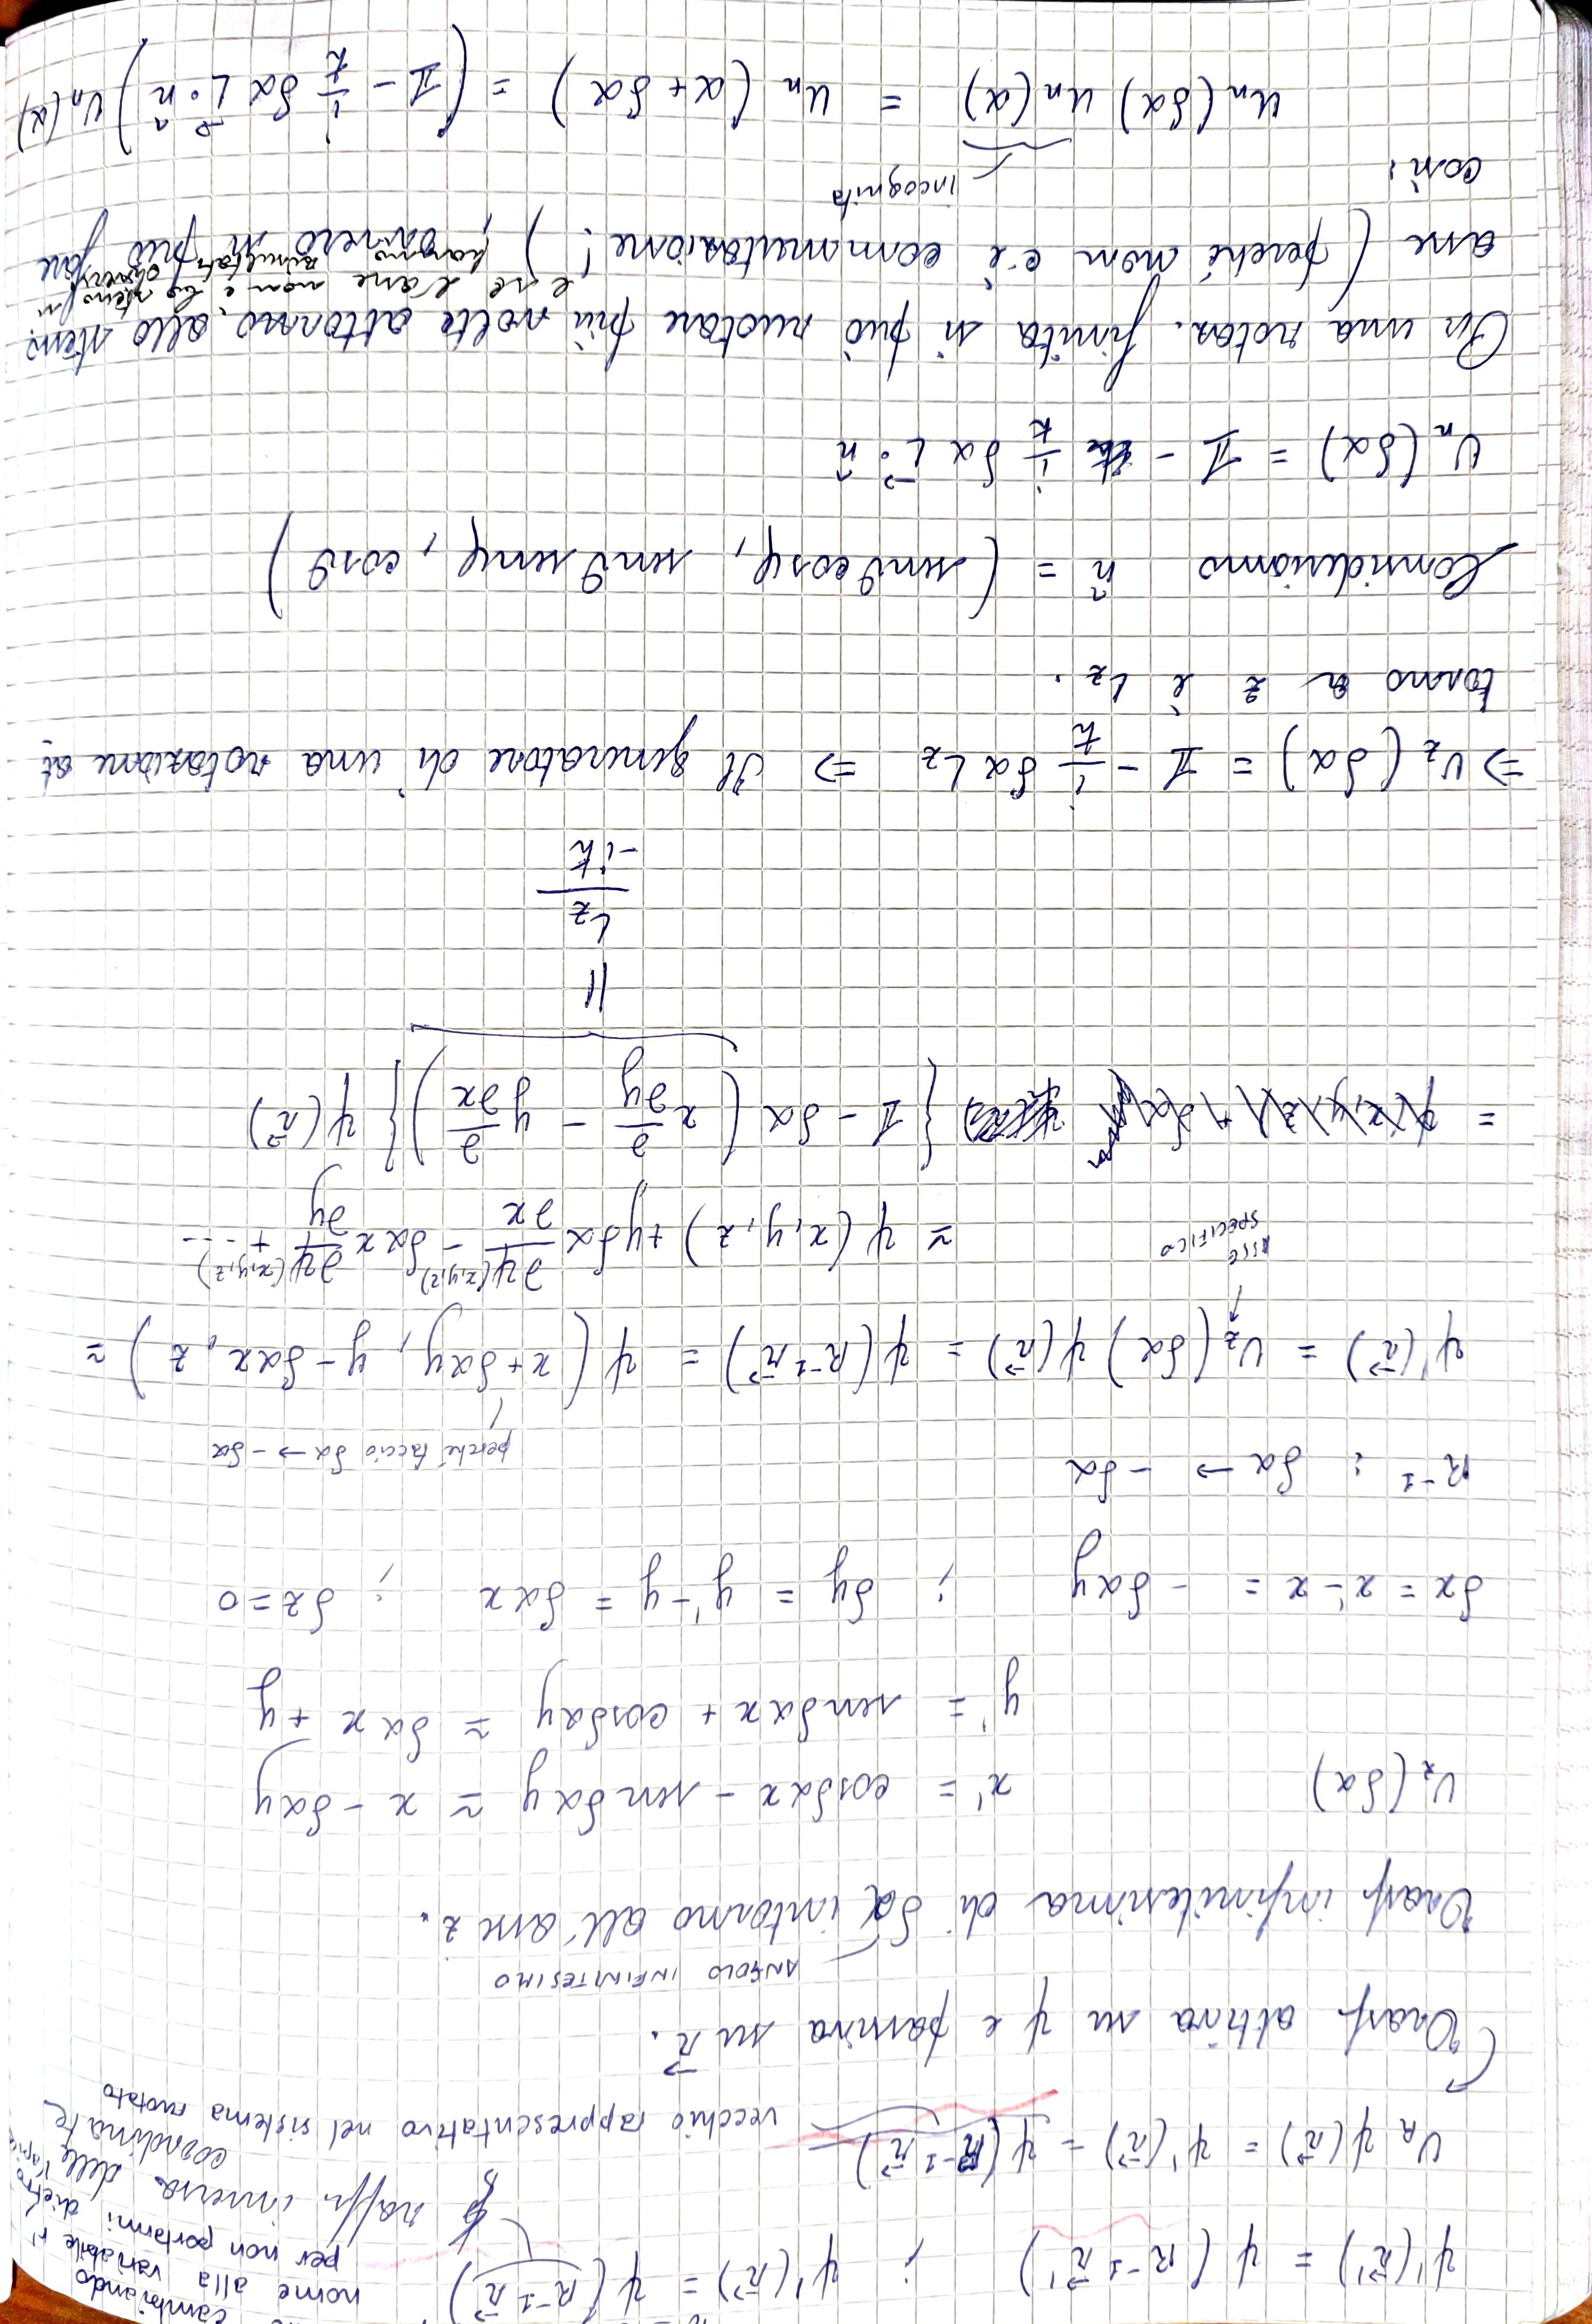 cambiando
nome alla variabile r'
per non portarmi dietro
l'apice
ψ'(r⃗') = ψ(R⁻¹ r⃗') ; ψ'(r⃗) = ψ(R⁻¹ r⃗)
rasf. inversa delle
coordinate
U_R ψ(r⃗) = ψ'(r⃗) = ψ(R⁻¹ r⃗)
vecchio rappresentativo nel sistema ruotato
Trasf. attiva su ψ e passiva su r⃗.
ANGOLO INFINITESIMO
Trasf. infinitesima di δα intorno all'asse z.
U_z(δα) x' = cosδα x - sen δα y ≃ x - δα y
y' = senδα x + cosδα y ≃ δα x + y
δx = x' - x = - δα y ; δy = y' - y = δα x ; δz = 0
R⁻¹ : δα → - δα
perché faccio δα → - δα
ψ'(r⃗) = U_z(δα) ψ(r⃗) = ψ(R⁻¹ r⃗) = ψ(x + δα y, y - δα x, z) ≃
ASSE
SPECIFICO
≃ ψ(x, y, z) + y δα ∂ψ(x,y,z)/∂x - δα x ∂ψ(x,y,z)/∂y + ...
= {𝟙 - δα (x ∂/∂y - y ∂/∂x)} ψ(r⃗)
||
L_z/-iħ
⇒ U_z(δα) = 𝟙 - i/ħ δα L_z ⇒ Il generatore di una rotazione at
torno a z è L_z.
Consideriamo n̂ = (senθ cosφ, senθ senφ, cosθ)
U_n(δα) = 𝟙 - i/ħ δα L⃗ · n̂
Per una rotaz. finita si può ruotare più volte attorno allo stesso
e se l'asse non è lo stesso si
hanno risultati diversi
asse (perché non c'è commutazione!), ovvero si può fare
così:
incognita
U_n(δα) U_n(α) = U_n(α + δα) = (𝟙 - i/ħ δα L⃗ · n̂) U_n(α)